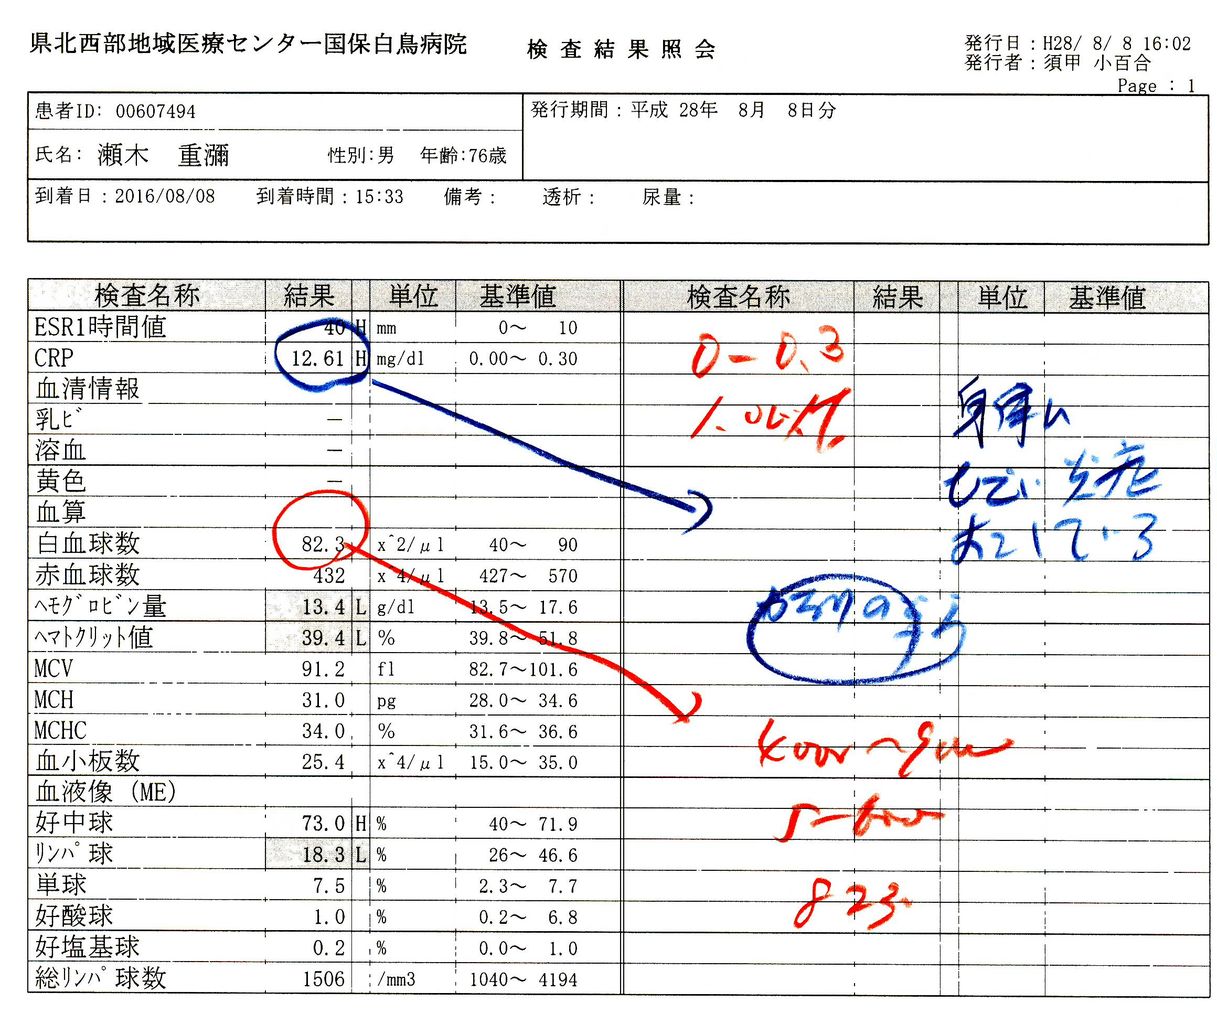 県北西部地域医療センター国保白鳥病院
検査結果照会
発行日：H28/ 8/ 8 16:02
発行者：須甲 小百合
Page : 1
患者ID: 00607494
発行期間：平成 28年 8月 8日分
氏名: 瀬木 重彌 性別:男 年齢:76歳
到着日：2016/08/08 到着時間：15:33 備考： 透析： 尿量：
検査名称 結果 単位 基準値 検査名称 結果 単位 基準値
ESR1時間値 40 H mm 0～ 10
CRP 12.61 H mg/dl 0.00～ 0.30
0－0.3
血清情報
乳ビ －
1.0以下
身体い
溶血 －
黄色 －
ひどい炎症
血算
白血球数 82.3 x^2/μl 40～ 90
おこしている
赤血球数 432 x^4/μl 427～ 570
ヘモグロビン量 13.4 L g/dl 13.5～ 17.6
ヘマトクリット値 39.4 L % 39.8～ 51.8
MCV 91.2 fl 82.7～101.6
MCH 31.0 pg 28.0～ 34.6
MCHC 34.0 % 31.6～ 36.6
4000～9000
血小板数 25.4 x^4/μl 15.0～ 35.0
血液像 (ME)
好中球 73.0 H % 40～ 71.9
リンパ球 18.3 L % 26～ 46.6
単球 7.5 % 2.3～ 7.7
823
好酸球 1.0 % 0.2～ 6.8
好塩基球 0.2 % 0.0～ 1.0
総リンパ球数 1506 /mm3 1040～ 4194